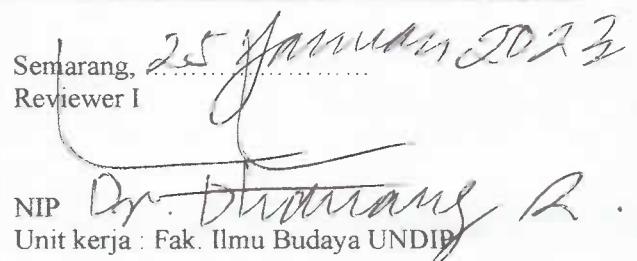 Semarang, 25 Januari 2023
Reviewer I
NIP Dr. R.
Unit kerja : Fak. Ilmu Budaya UNDIP